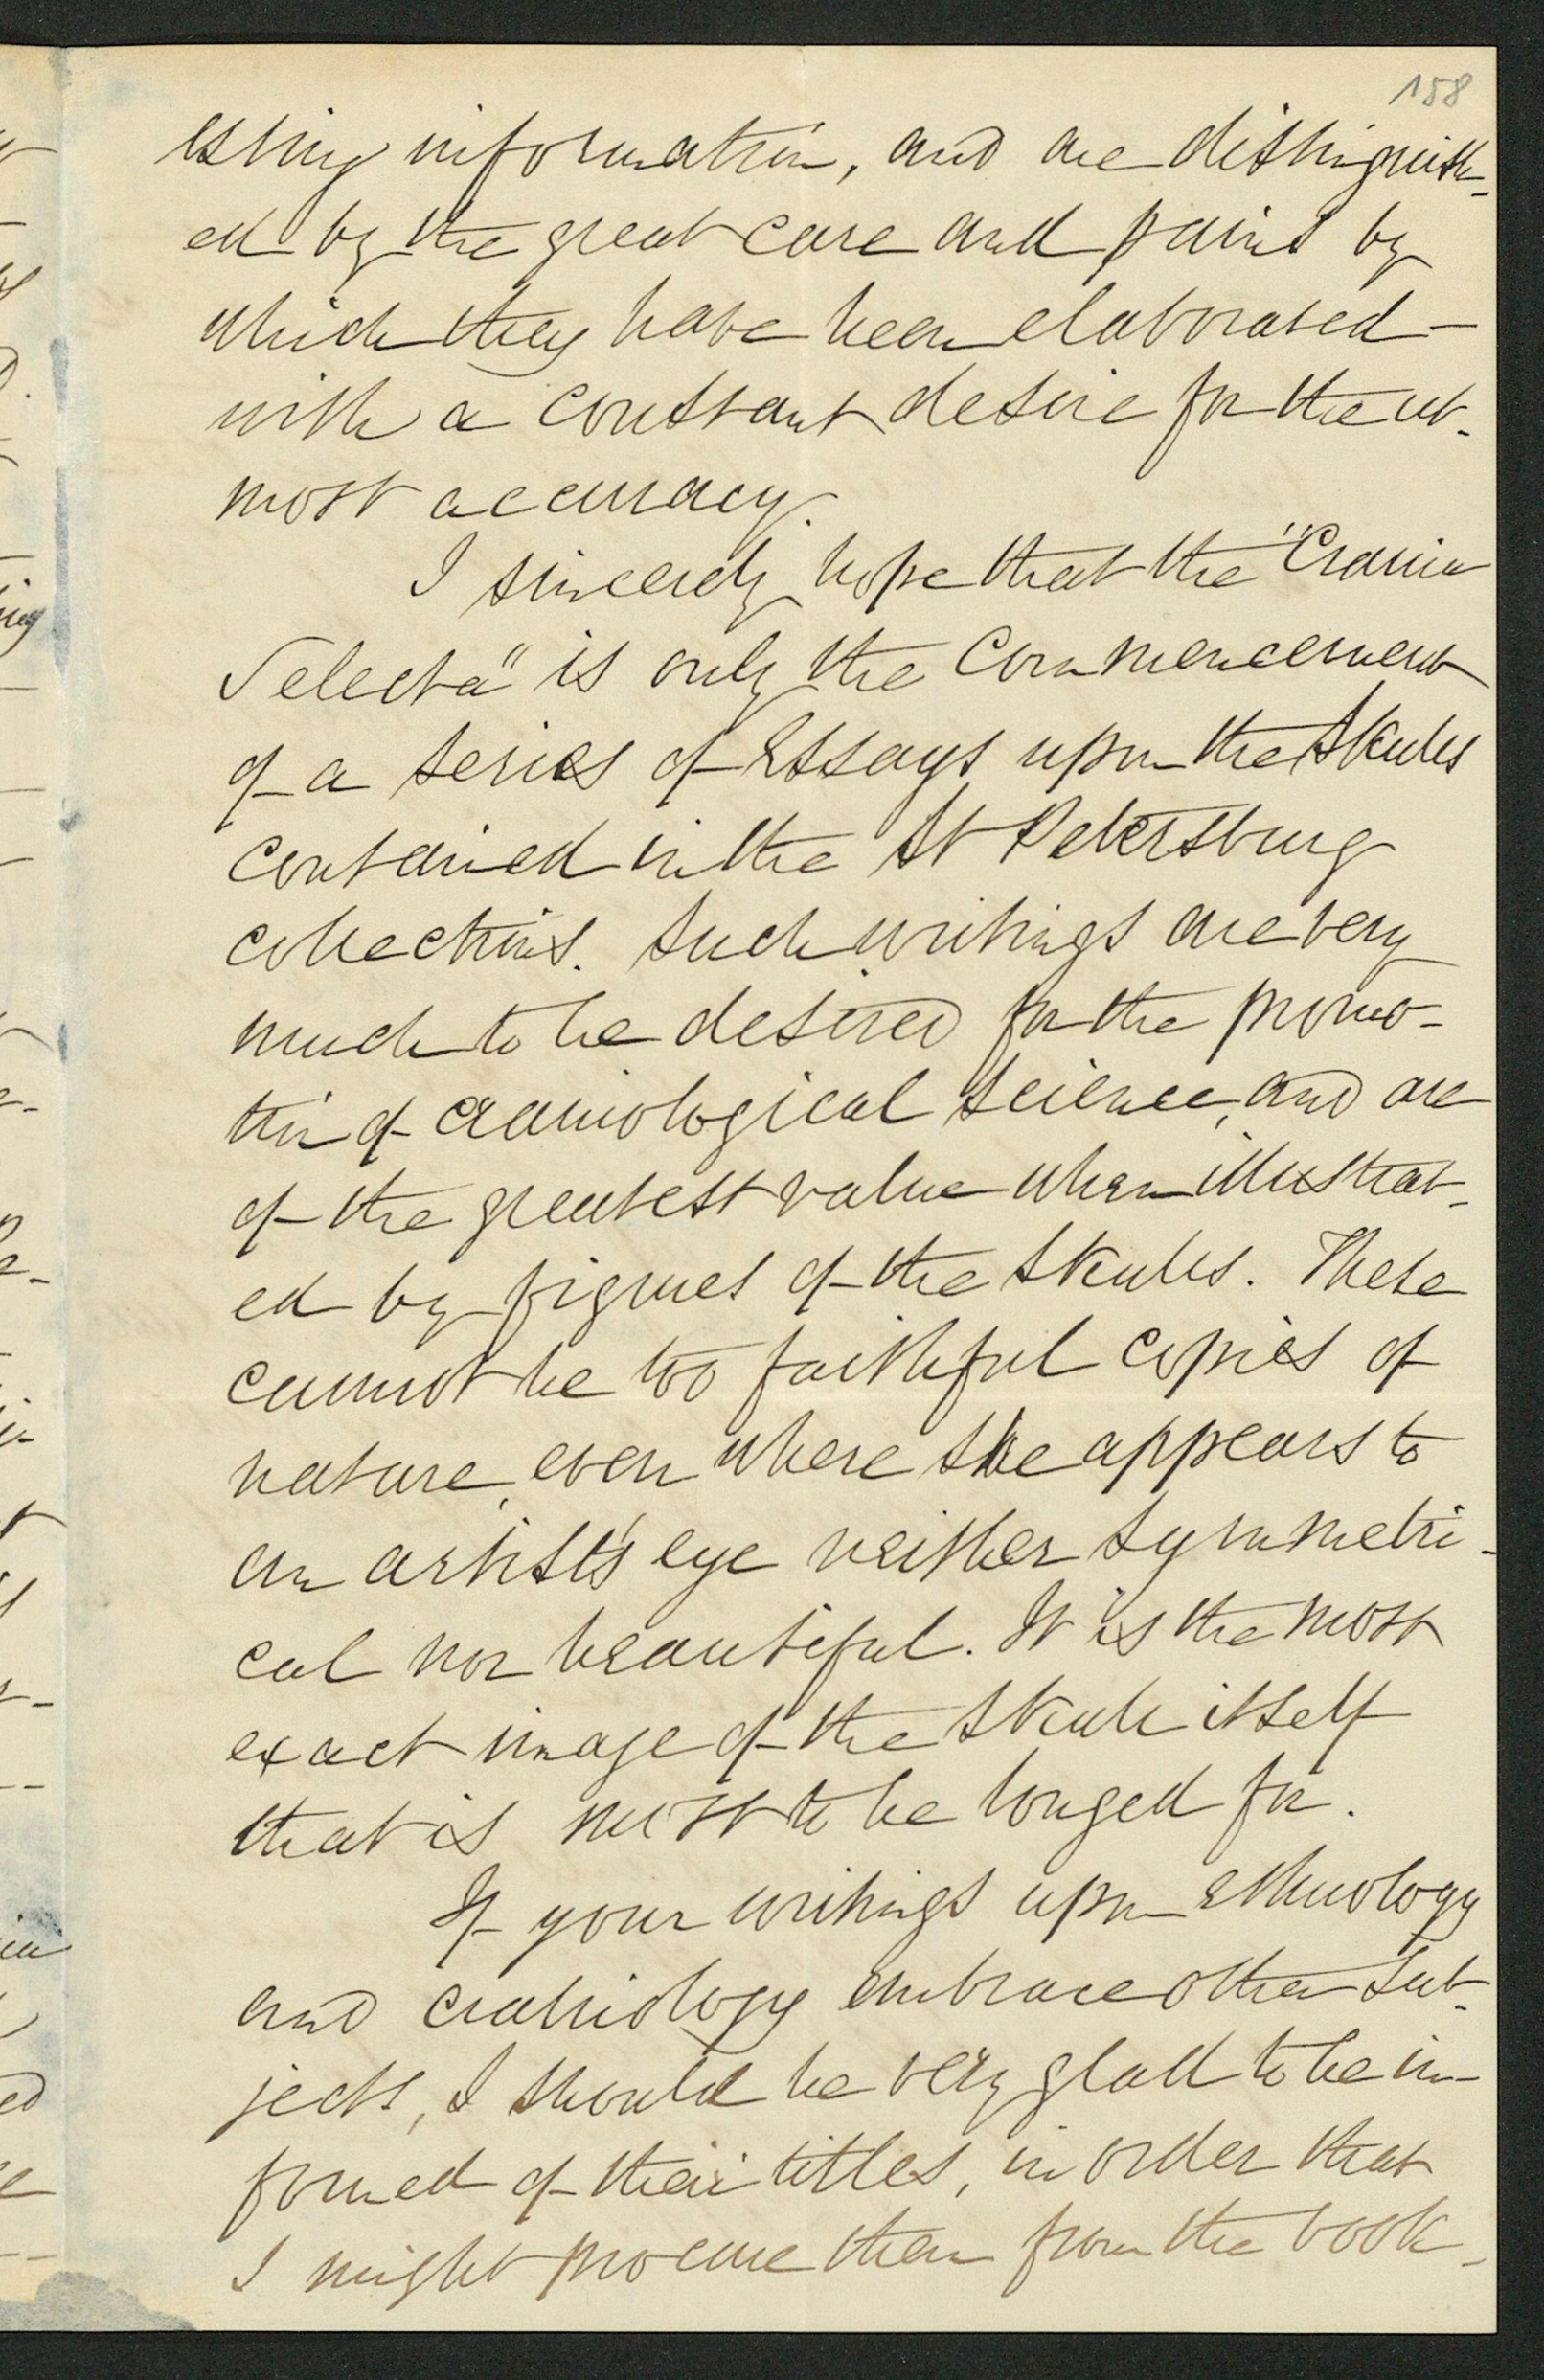 158
esting information, and are distinguish-
ed by the great care and pains by
which they have been elaborated —
with a constant desire for the ut-
most accuracy.
I sincerely hope that the "Crania
Selecta" is only the Commencement
of a series of Essays upon the Skulls
contained in the St Petersburg
collections. Such writings are very
much to be desired for the promo-
tion of craniological science, and are
of the greatest value when illustrat-
ed by figures of the Skulls. These
cannot be too faithful copies of
nature, even where she appears to
an artist's eye neither symmetri-
cal nor beautiful. It is the most
exact image of the Skull itself
that is most to be longed for.
If your writings upon Ethnology
and craniology embrace other sub-
jects, I should be very glad to be in-
formed of their titles, in order that
I might procure them from the book-